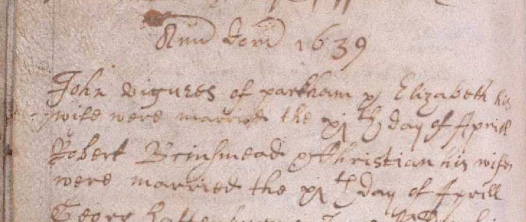 Anno Domi 1639
John vigures of parkham & Elizabeth his
wife were married the xj th day of Aprill
Robert Brinsmead & Christian his wife
were married the xj th day of Aprill
Georg